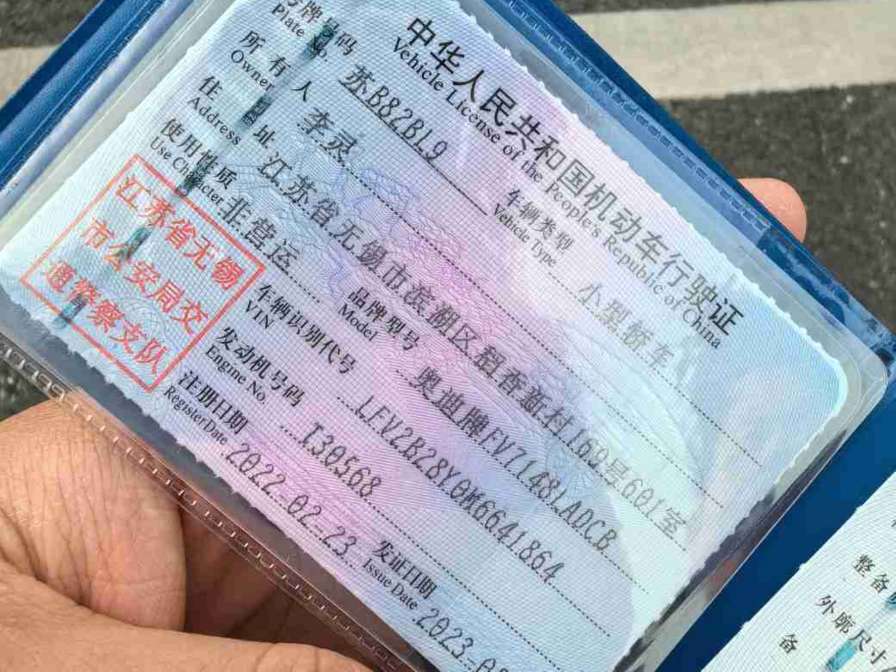 中华人民共和国机动车行驶证
Vehicle License of the People's Republic of China
号牌号码 苏B82B19 车辆类型 小型轿车
Plate No. Vehicle Type
所有人 李灵
Owner
住址 江苏省无锡市滨湖区稻香新村169号601室
Address
使用性质 非营运 品牌型号 奥迪牌FV7148LADCB
Use Character Model
江苏省无锡
市公安局交
通警察支队
车辆识别代号 LFV2B28Y0M6641864
VIN
发动机号码 T30568
Engine No.
注册日期 2022-02-23 发证日期 2023-0
Register Date Issue Date
整备
外廓尺寸
备